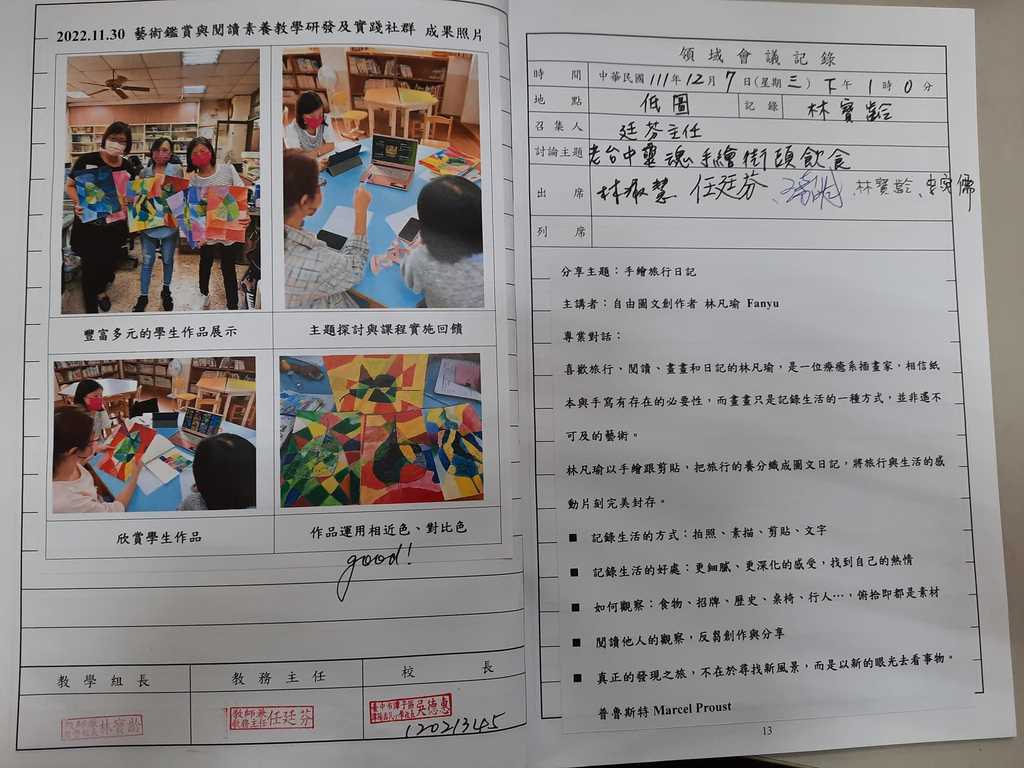 2022.11.30 藝術鑑賞與閱讀素養教學研發及實踐社群 成果照片
豐富多元的學生作品展示
主題探討與課程實施回饋
欣賞學生作品
作品運用相近色、對比色
good!
教學組長
教務主任
校長
林寶齡
教師兼教務主任 任廷芬
吳德惠
12021345
領域會議記錄
時間 中華民國 111年 12月 7日(星期 三) 下午 1時 0分
地點 低圖 記錄 林寶齡
召集人 廷芬主任
討論主題 老台中靈魂手繪街頭飲食
出席 林淑慧 任廷芬 林寶齡
列席
分享主題：手繪旅行日記
主講者：自由圖文創作者 林凡瑜 Fanyu
專業對話：
喜歡旅行、閱讀、畫畫和日記的林凡瑜，是一位療癒系插畫家，相信紙
本與手寫有存在的必要性，而畫畫只是記錄生活的一種方式，並非遙不
可及的藝術。
林凡瑜以手繪跟剪貼，把旅行的養分織成圖文日記，將旅行與生活的感
動片刻完美封存。
■ 記錄生活的方式：拍照、素描、剪貼、文字
■ 記錄生活的好處：更細膩、更深化的感受，找到自己的熱情
■ 如何觀察：食物、招牌、歷史、桌椅、行人…，俯拾即都是素材
■ 閱讀他人的觀察，反芻創作與分享
■ 真正的發現之旅，不在於尋找新風景，而是以新的眼光去看事物。
普魯斯特 Marcel Proust
13